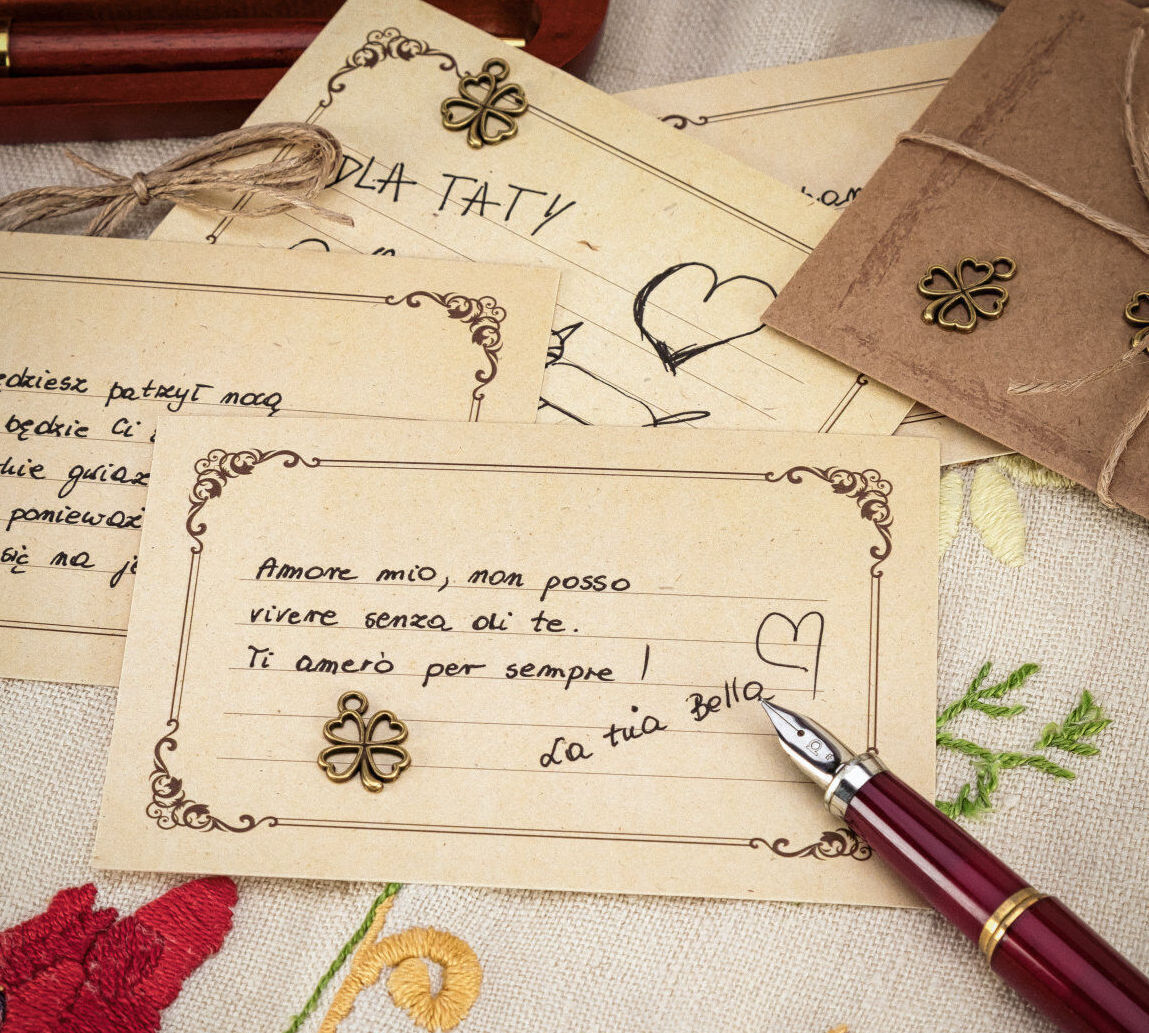 DLA TATY
ędziesz patrzył nocą
będzie Ci
kie gwiaz
ponieważ
się na je
Amore mio, non posso
vivere senza di te.
Ti amerò per sempre!
La tua Bella